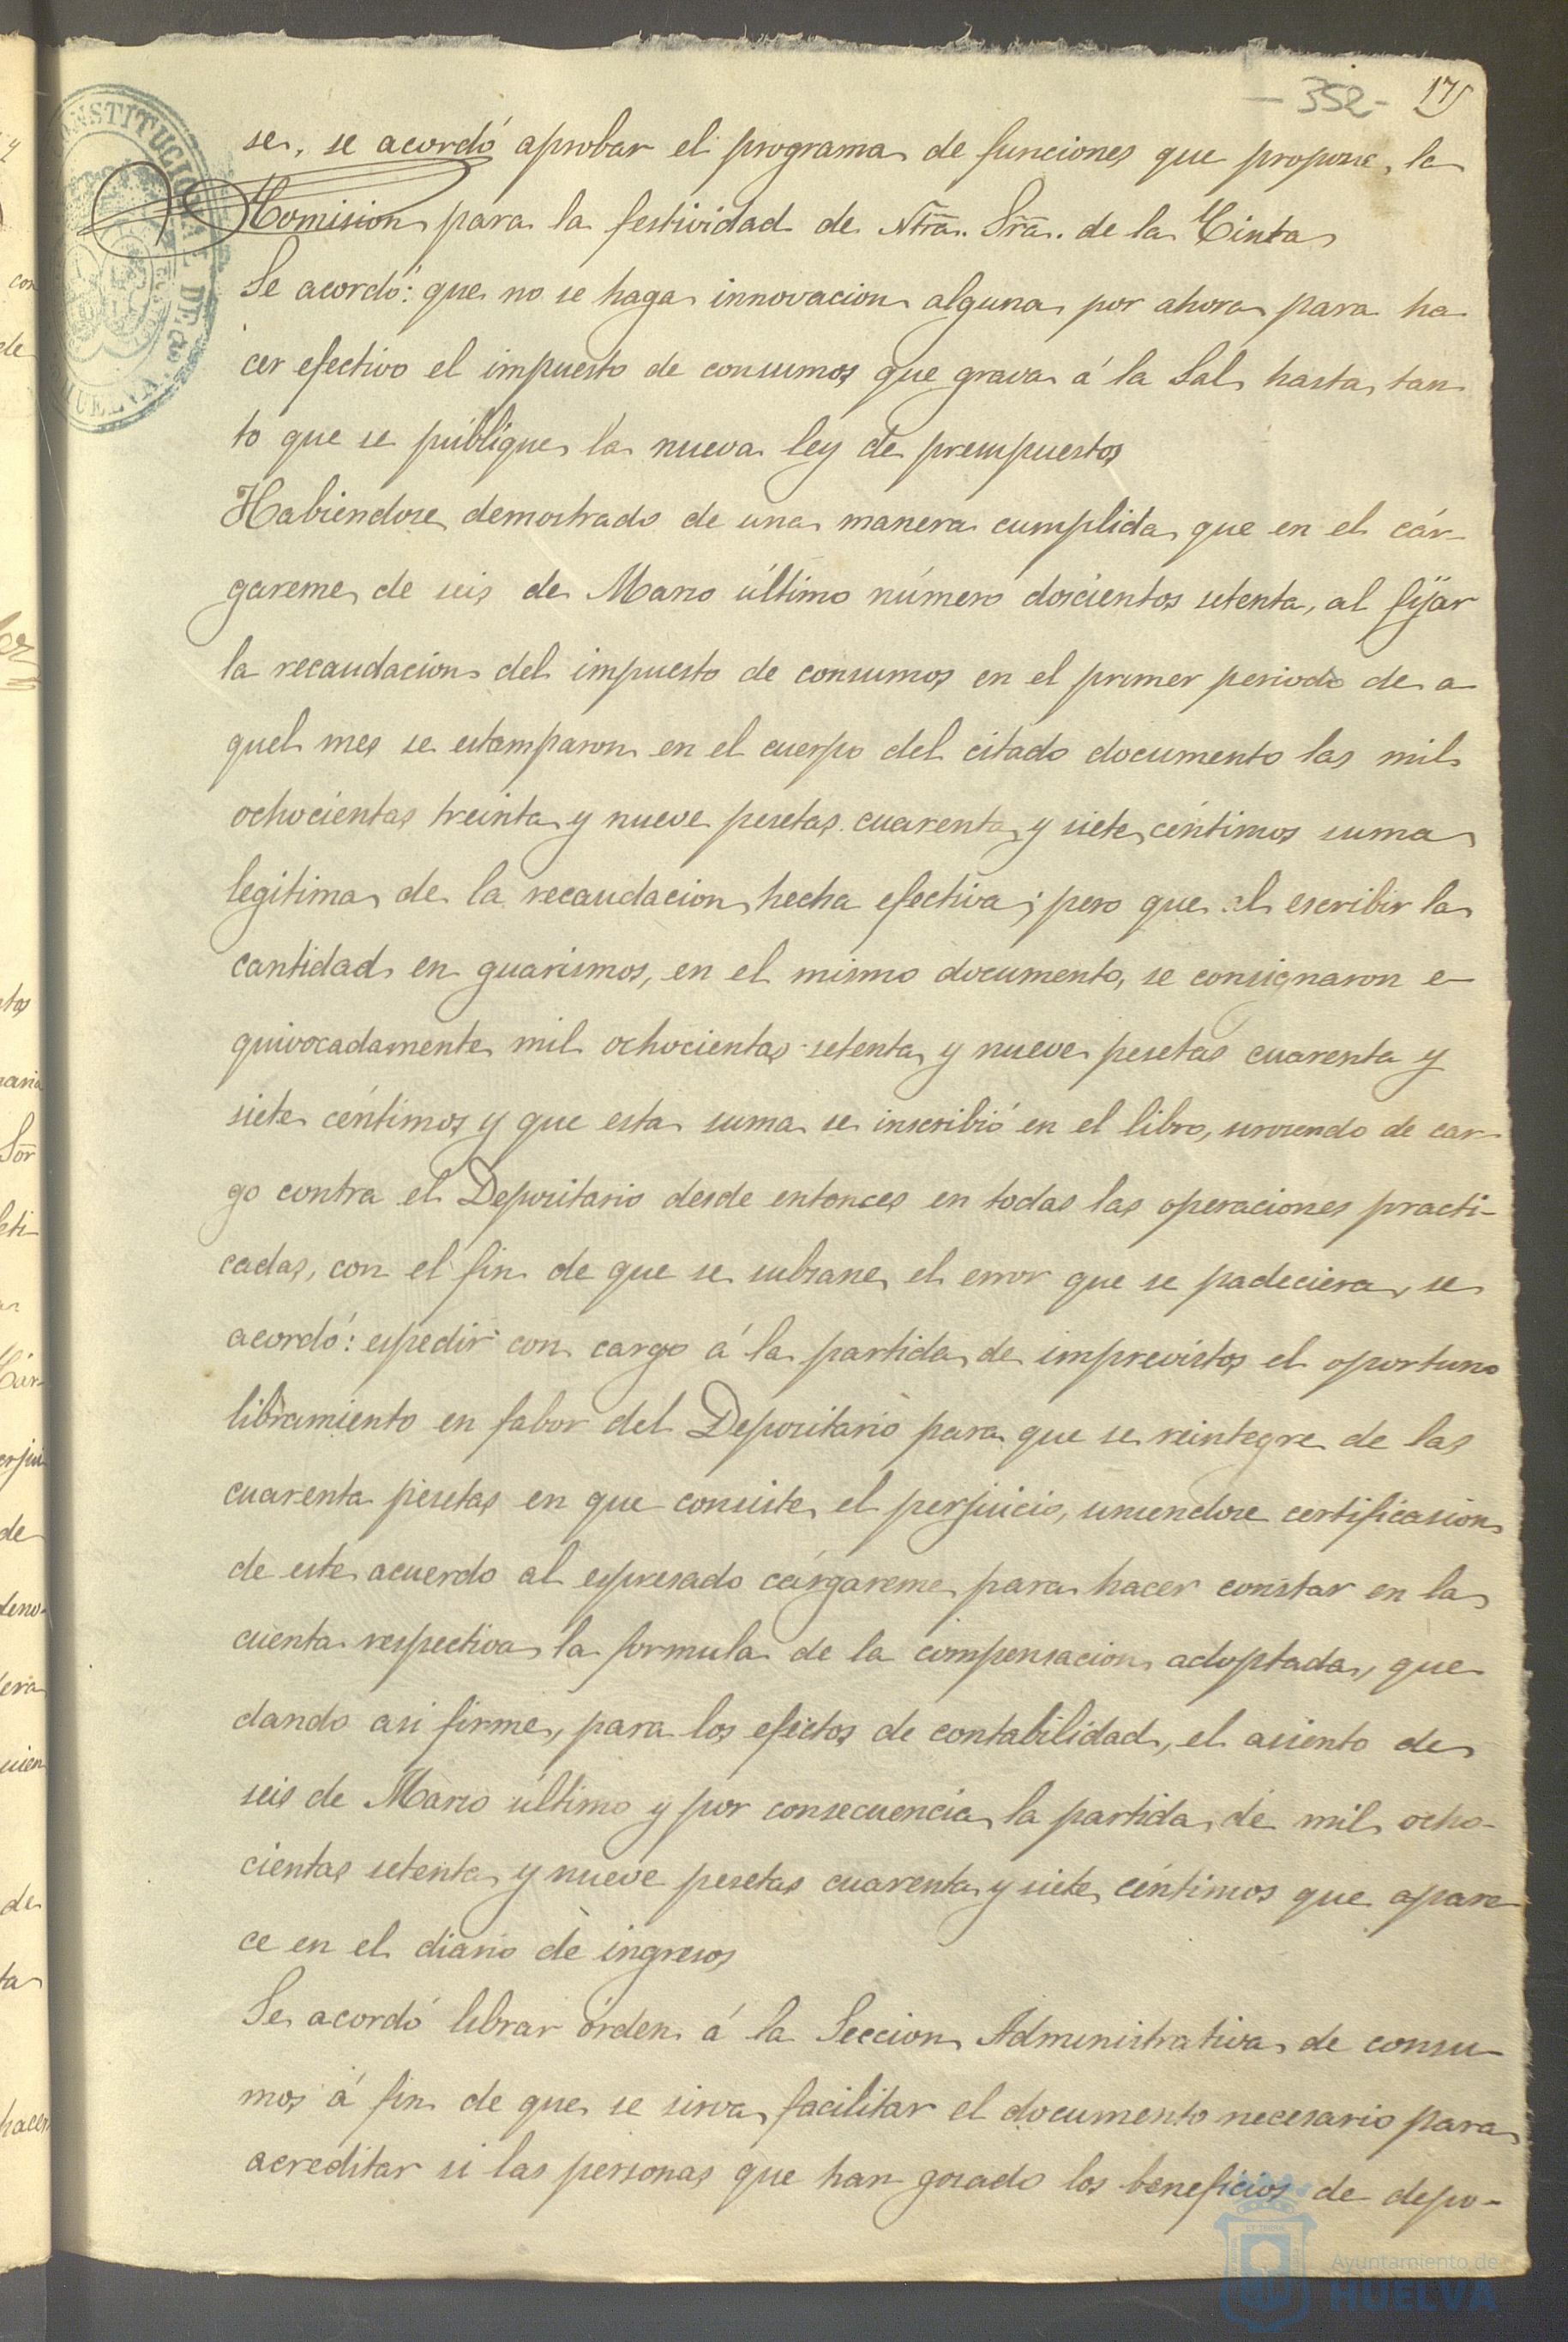 -352- 175
se, se acordó aprobar el programa de funciones que propone, la
Comision para la festividad de Ntra. Sra. de la Cinta
Se acordó: que no se haga innovacion alguna por ahora para ha
cer efectivo el impuesto de consumos que grava á la Sal hasta tan
to que se publique la nueva ley de presupuestos
Habiendose demostrado de una manera cumplida que en el cár-
gareme de seis de Marzo último número doscientos setenta, al fijar
la recaudacion del impuesto de consumos en el primer periodo de a
quel mes se estamparon en el cuerpo del citado documento las mil
ochocientas treinta y nueve pesetas cuarenta y siete céntimos suma
legitima de la recaudacion hecha efectiva; pero que al escribir la
cantidad en guarismos, en el mismo documento, se consignaron e-
quivocadamente mil ochocientas setenta y nueve pesetas cuarenta y
siete céntimos y que esta suma se inscribió en el libro, sirviendo de car-
go contra el Depositario desde entonces en todas las operaciones practi-
cadas, con el fin de que se subsane el error que se padeciera, se
acordó: espedir con cargo á la partida de imprevistos el oportuno
libramiento en fabor del Depositario para que se reintegre de las
cuarenta pesetas en que consiste el perjuicio, uniendose certificasion
de este acuerdo al espresado cárgareme para hacer constar en la
cuenta respectiva la formula de la compensacion adoptada, que
dando asi firme, para los efectos de contabilidad, el asiento de
seis de Marzo último y por consecuencia la partida de mil ocho-
cientas setenta y nueve pesetas cuarenta y siete céntimos que apare
ce en el diario de ingresos
Se acordó librar órden á la Seccion Administrativa de consu-
mos á fin de que se sirva facilitar el documento necesario para
acreditar si las personas que han gozado los beneficios de depo-
CONSTITUCIONAL DE
HUELVA
Ayuntamiento de
HUELVA